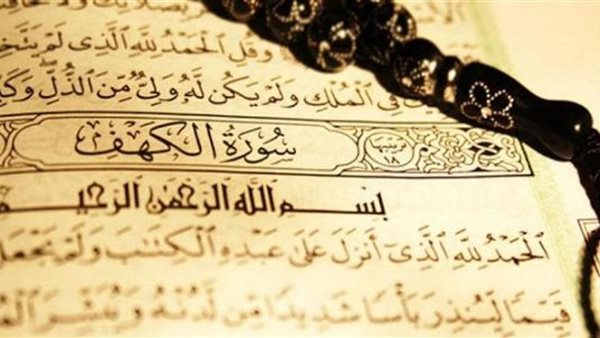 وَقُلِ ٱلْحَمْدُ لِلَّهِ ٱلَّذِى لَمْ
فِى ٱلْمُلْكِ وَلَمْ يَكُن لَّهُۥ وَلِىٌّ مِّنَ ٱلذُّلِّ ۖ
سُورَةُ ٱلْكَهْفِ ترتيبها ١٨
بِسْمِ ٱللَّهِ ٱلرَّحْمَٰنِ ٱلرَّحِيمِ
ٱلْحَمْدُ لِلَّهِ ٱلَّذِىٓ أَنزَلَ عَلَىٰ عَبْدِهِ ٱلْكِتَٰبَ وَلَمْ يَجْعَل
قَيِّمًا لِّيُنذِرَ بَأْسًا شَدِيدًا مِّن لَّدُنْهُ وَيُبَشِّرَ